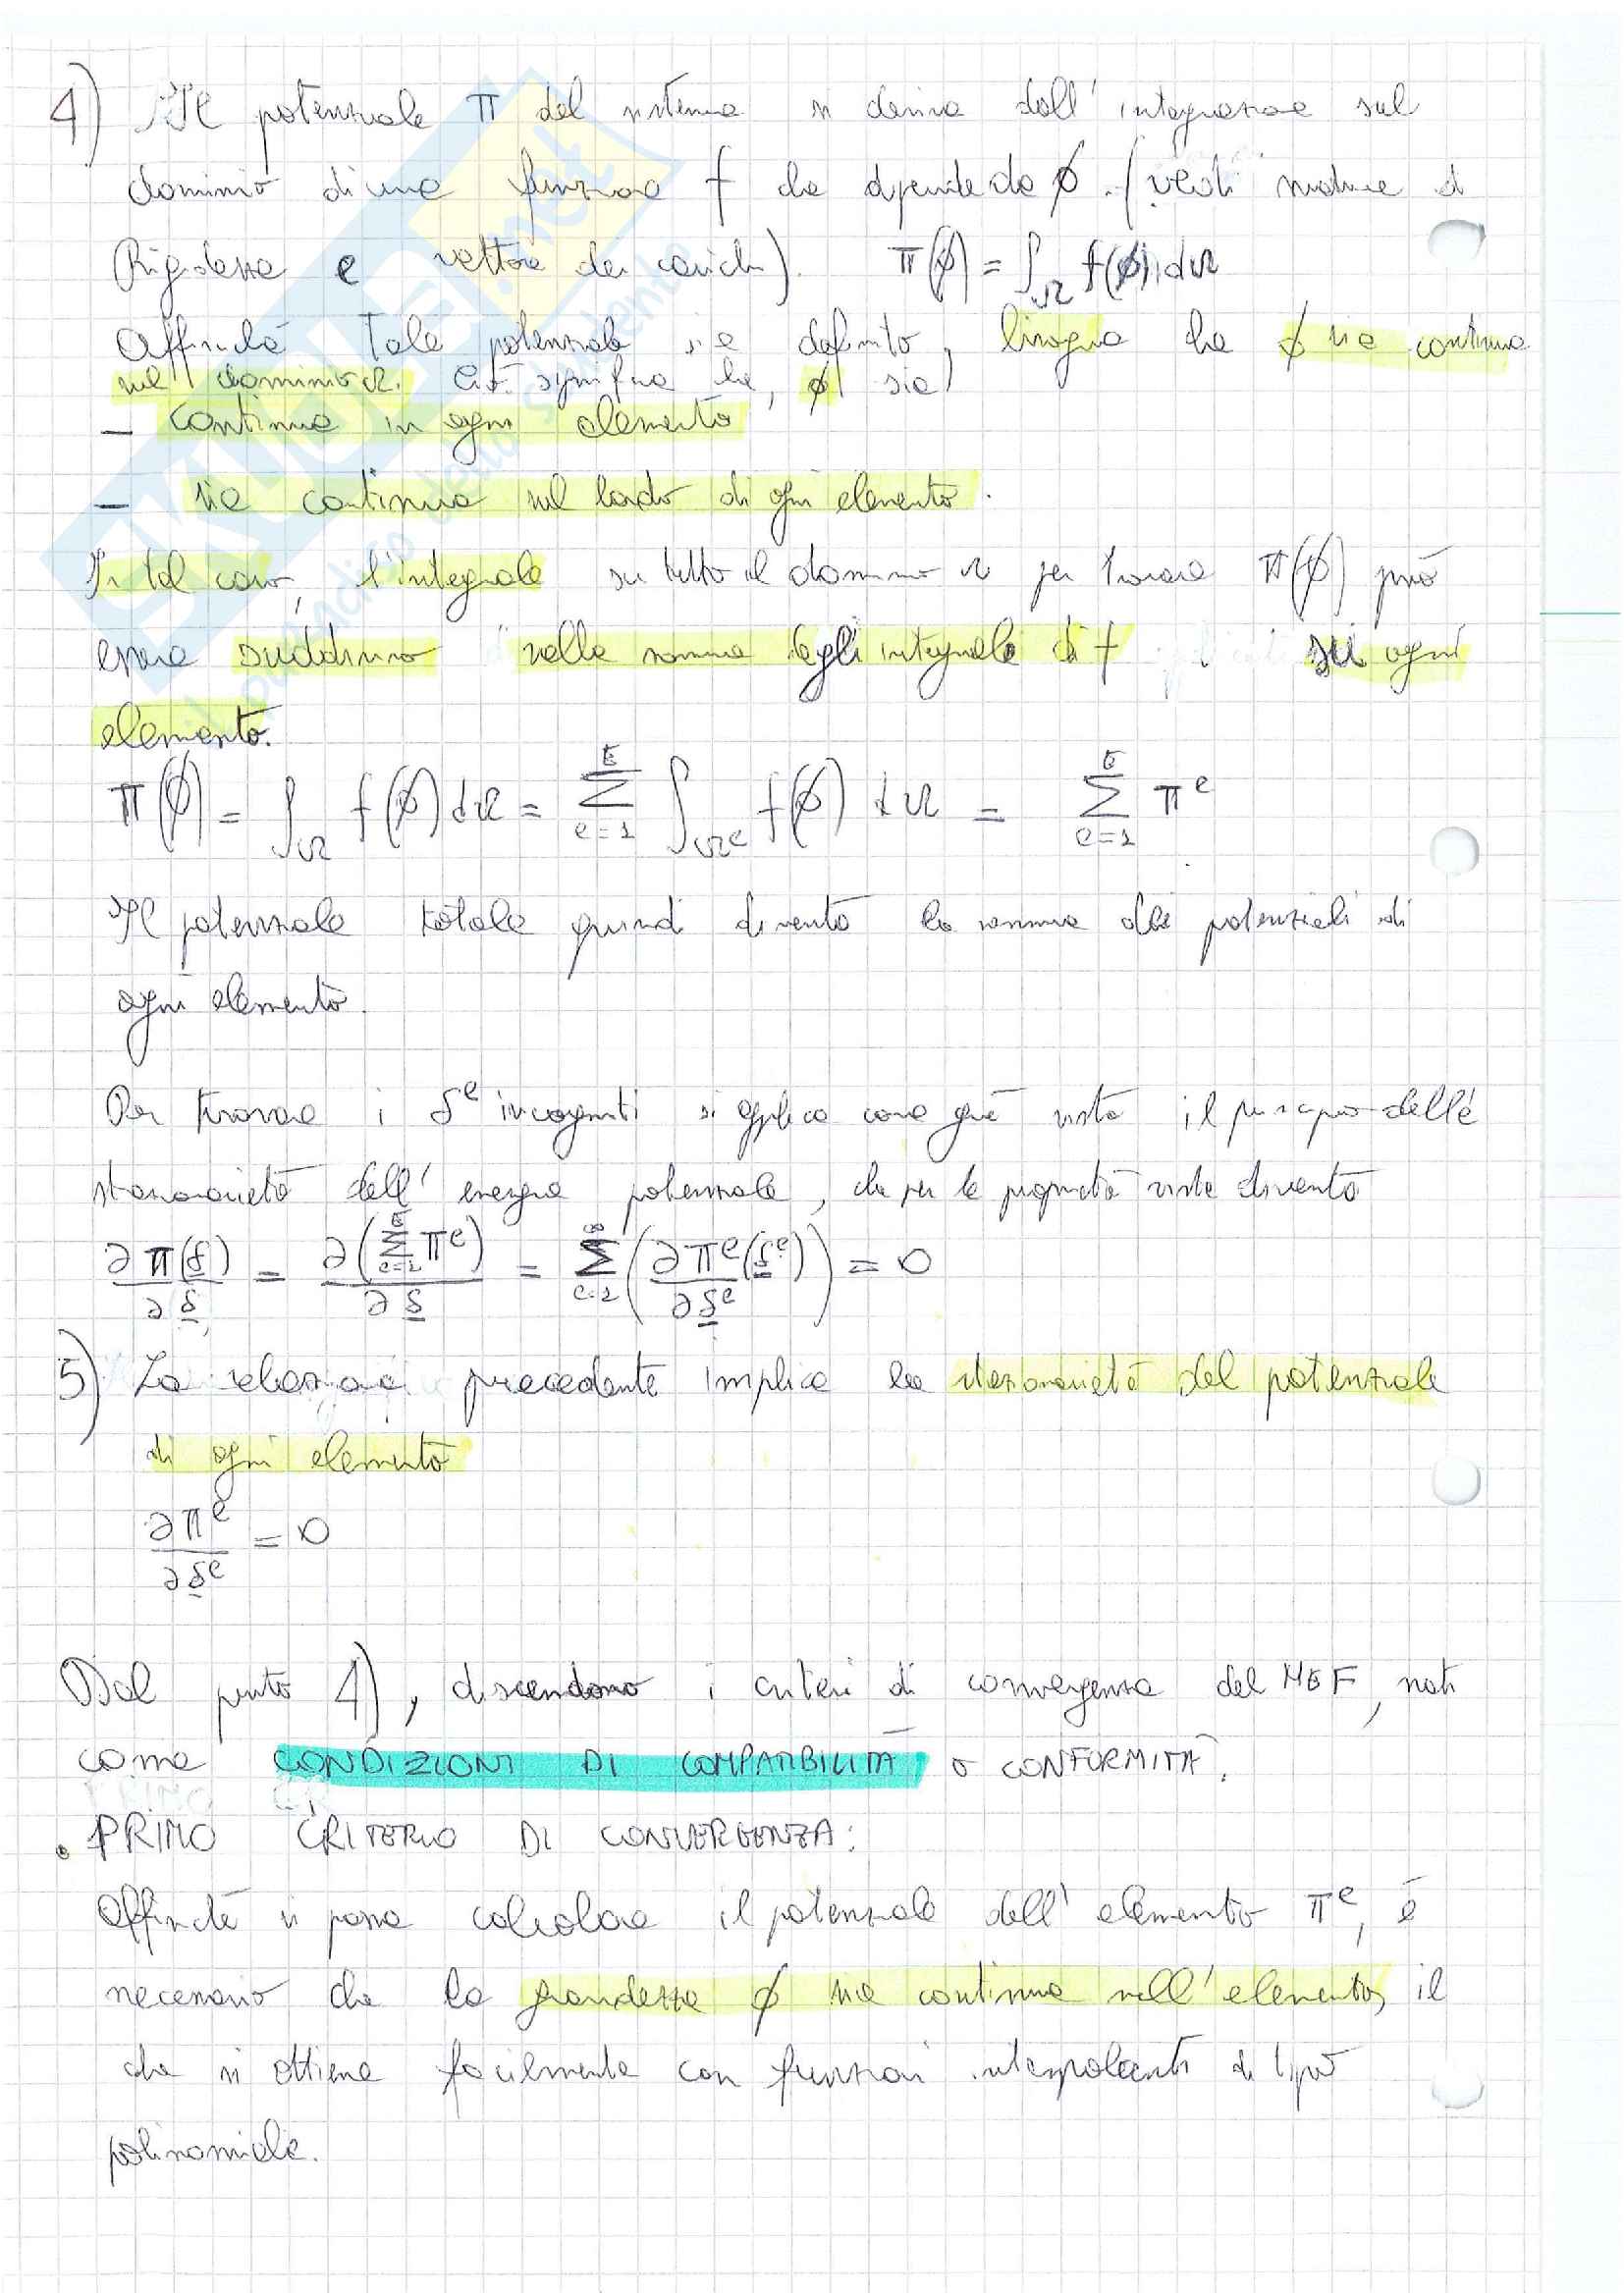 4) Il potenziale π del sistema si deriva dall'integrazione sul
dominio di una funzione f che dipende da ϕ. (vedi matrice di
Rigidezza e vettore dei carichi). π(ϕ) = ∫_Ω f(ϕ) dΩ
Affinché tale potenziale sia definito, bisogna che ϕ sia continua
nel dominio Ω. Ciò significa che, ϕ sia
- continua in ogni elemento
- sia continua sul bordo di ogni elemento.
In tal caso, l'integrale su tutto il dominio Ω per trovare π(ϕ) può
essere suddiviso nella somma degli integrali di f su ogni
elemento.
π(ϕ) = ∫_Ω f(ϕ) dΩ = Σ_{e=1}^{E} ∫_{Ωe} f(ϕ) dΩ = Σ_{e=1}^{E} π^e
Il potenziale totale quindi diventa la somma dei potenziali di
ogni elemento.
Per trovare i δ^e incogniti si applica come già visto il principio della
stazionarietà dell'energia potenziale, che per le proprietà viste diventa
∂π(δ)/∂δ = ∂(Σ_{e=1}^{E} π^e)/∂δ = Σ_{e=1}^{∞} (∂π^e(δ^e)/∂δ^e) = 0
5) La relazione precedente implica la stazionarietà del potenziale
di ogni elemento
∂π^e/∂δ^e = 0
Dal punto 4), discendono i criteri di convergenza del MEF, noti
come CONDIZIONI DI COMPATIBILITÀ o CONFORMITÀ.
• PRIMO CRITERIO DI CONVERGENZA:
Affinché si possa calcolare il potenziale dell'elemento π^e, è
necessario che la grandezza ϕ sia continua nell'elemento, il
che si ottiene facilmente con funzioni interpolanti di tipo
polinomiale.